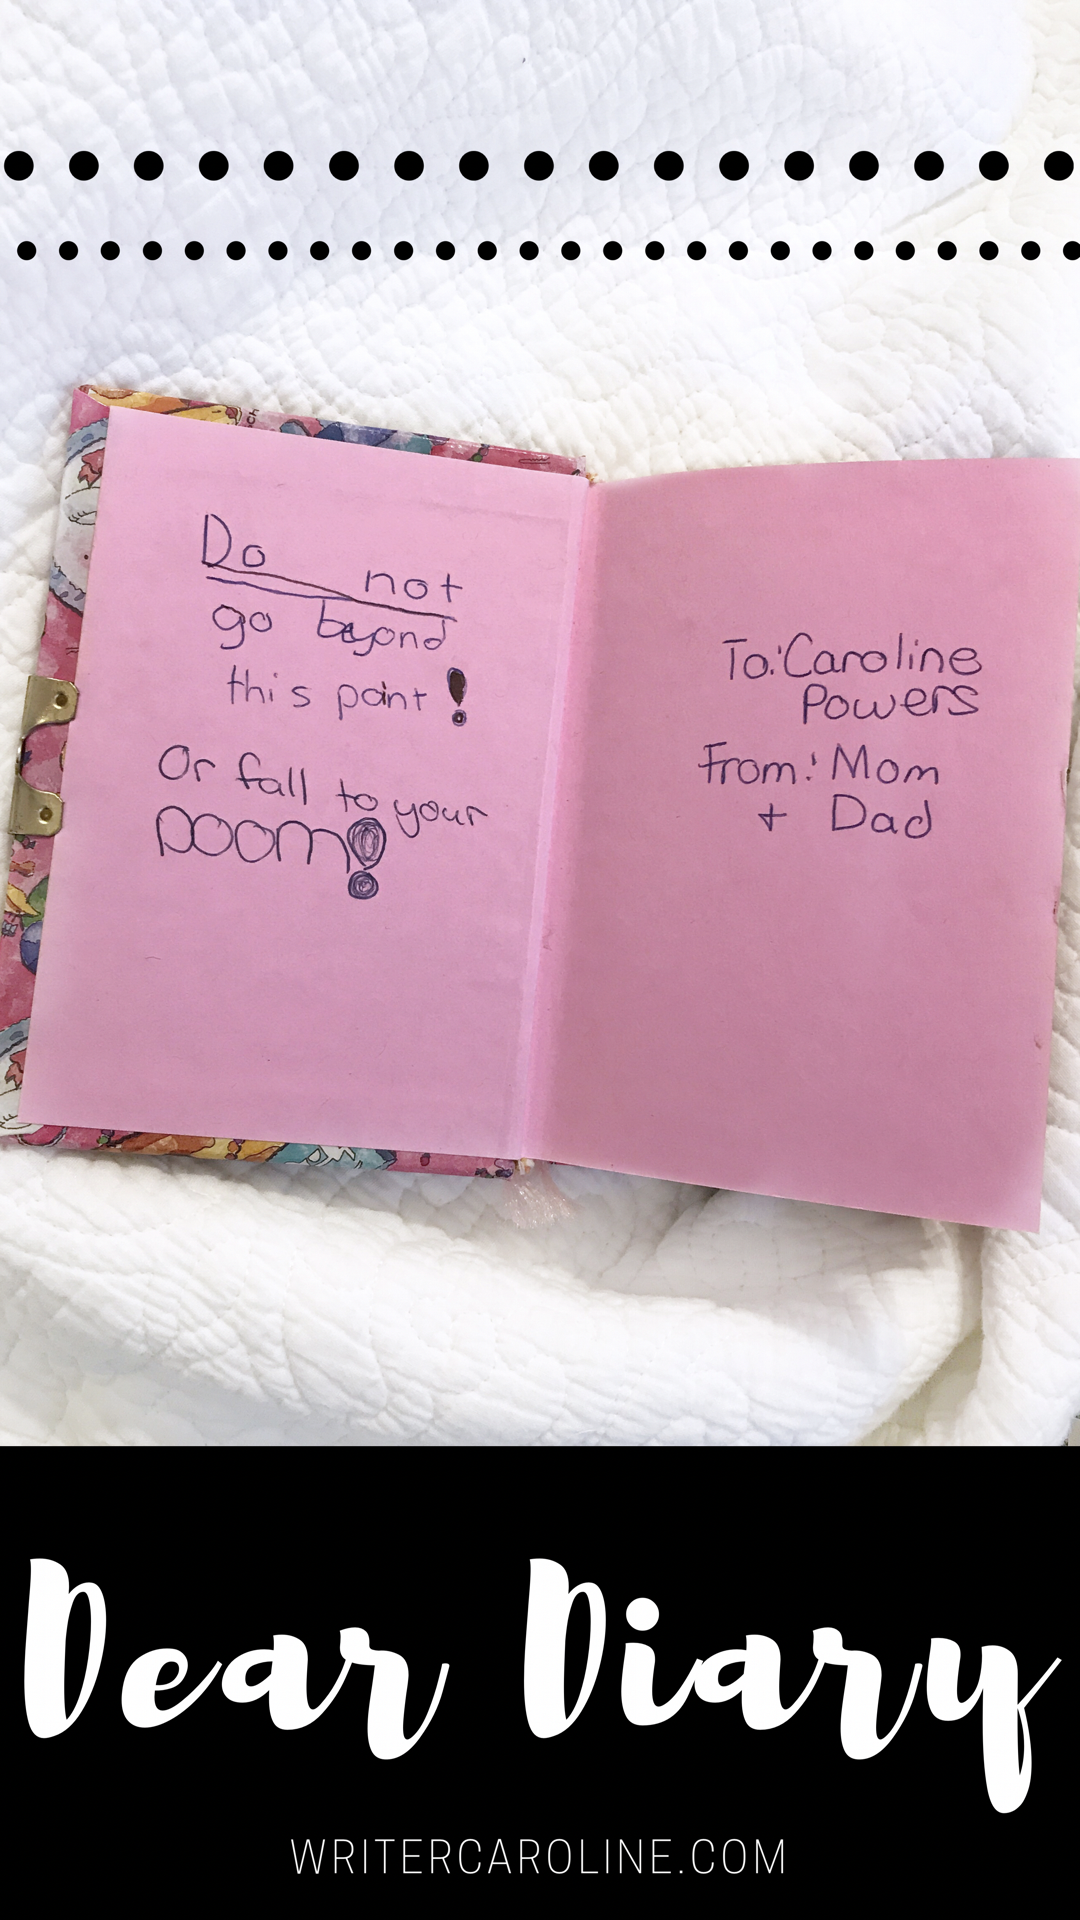 Do not
go beyond
this point!
Or fall to your
DOOM!
To: Caroline
Powers
From: Mom
+ Dad
Dear Diary
WRITERCAROLINE.COM